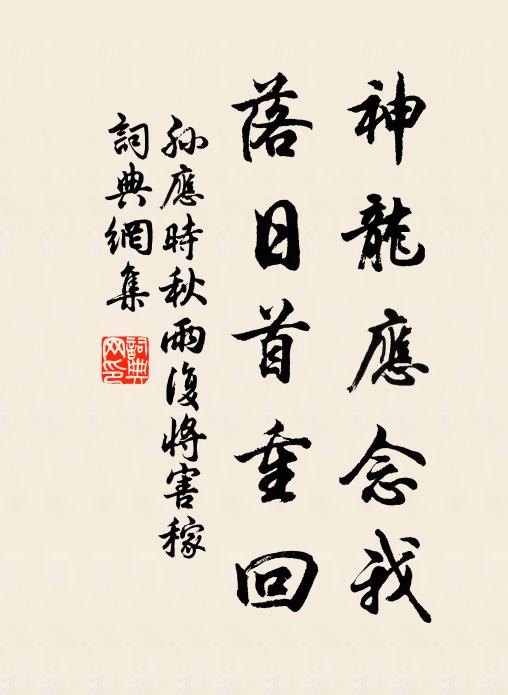 神龍應念我
落日首重回
孫應時秋雨復將害稼
詞典網集
詞典網印